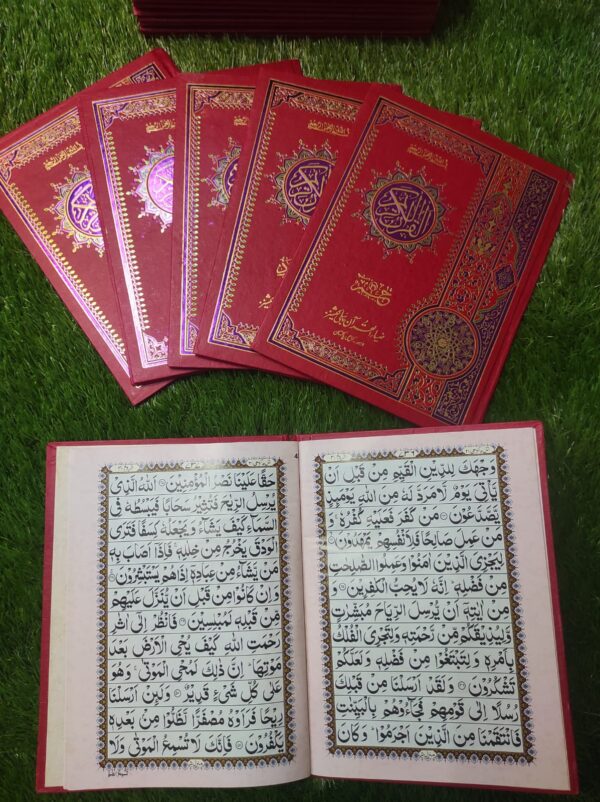 القرآن الكريم
ضیاء القرآن پبلی کیشنز
وَجْهَكَ لِلدِّيْنِ الْقَيِّمِ مِنْ قَبْلِ اَنْ
يَّاْتِيَ يَوْمٌ لَّا مَرَدَّ لَهٗ مِنَ اللّٰهِ يَوْمَئِذٍ
يَّصَّدَّعُوْنَ ۝ مَنْ كَفَرَ فَعَلَيْهِ كُفْرُهٗ ۚ وَ
مَنْ عَمِلَ صَالِحًا فَلِاَنْفُسِهِمْ يَمْهَدُوْنَ ۝
لِيَجْزِيَ الَّذِيْنَ اٰمَنُوْا وَعَمِلُوا الصّٰلِحٰتِ
مِنْ فَضْلِهٖ ؕ اِنَّهٗ لَا يُحِبُّ الْكٰفِرِيْنَ ۝ وَ
مِنْ اٰيٰتِهٖٓ اَنْ يُّرْسِلَ الرِّيَاحَ مُبَشِّرٰتٍ
وَّلِيُذِيْقَكُمْ مِّنْ رَّحْمَتِهٖ وَلِتَجْرِيَ الْفُلْكُ
بِاَمْرِهٖ وَلِتَبْتَغُوْا مِنْ فَضْلِهٖ وَلَعَلَّكُمْ
تَشْكُرُوْنَ ۝ وَلَقَدْ اَرْسَلْنَا مِنْ قَبْلِكَ
رُسُلًا اِلٰى قَوْمِهِمْ فَجَآءُوْهُمْ بِالْبَيِّنٰتِ
فَانْتَقَمْنَا مِنَ الَّذِيْنَ اَجْرَمُوْا ؕ وَ كَانَ
حَقًّا عَلَيْنَا نَصْرُ الْمُؤْمِنِيْنَ ۝ اَللّٰهُ الَّذِيْ
يُرْسِلُ الرِّيٰحَ فَتُثِيْرُ سَحَابًا فَيَبْسُطُهٗ فِي
السَّمَآءِ كَيْفَ يَشَآءُ وَ يَجْعَلُهٗ كِسَفًا فَتَرَى
الْوَدْقَ يَخْرُجُ مِنْ خِلٰلِهٖ ۚ فَاِذَآ اَصَابَ بِهٖ
مَنْ يَّشَآءُ مِنْ عِبَادِهٖٓ اِذَا هُمْ يَسْتَبْشِرُوْنَ ۝
وَ اِنْ كَانُوْا مِنْ قَبْلِ اَنْ يُّنَزَّلَ عَلَيْهِمْ
مِّنْ قَبْلِهٖ لَمُبْلِسِيْنَ ۝ فَانْظُرْ اِلٰٓى اٰثٰرِ
رَحْمَتِ اللّٰهِ كَيْفَ يُحْيِ الْاَرْضَ بَعْدَ
مَوْتِهَا ؕ اِنَّ ذٰلِكَ لَمُحْيِ الْمَوْتٰى ۚ وَهُوَ
عَلٰى كُلِّ شَيْءٍ قَدِيْرٌ ۝ وَلَئِنْ اَرْسَلْنَا
رِيْحًا فَرَاَوْهُ مُصْفَرًّا لَّظَلُّوْا مِنْۢ بَعْدِهٖ
يَكْفُرُوْنَ ۝ فَاِنَّكَ لَا تُسْمِعُ الْمَوْتٰى وَلَا